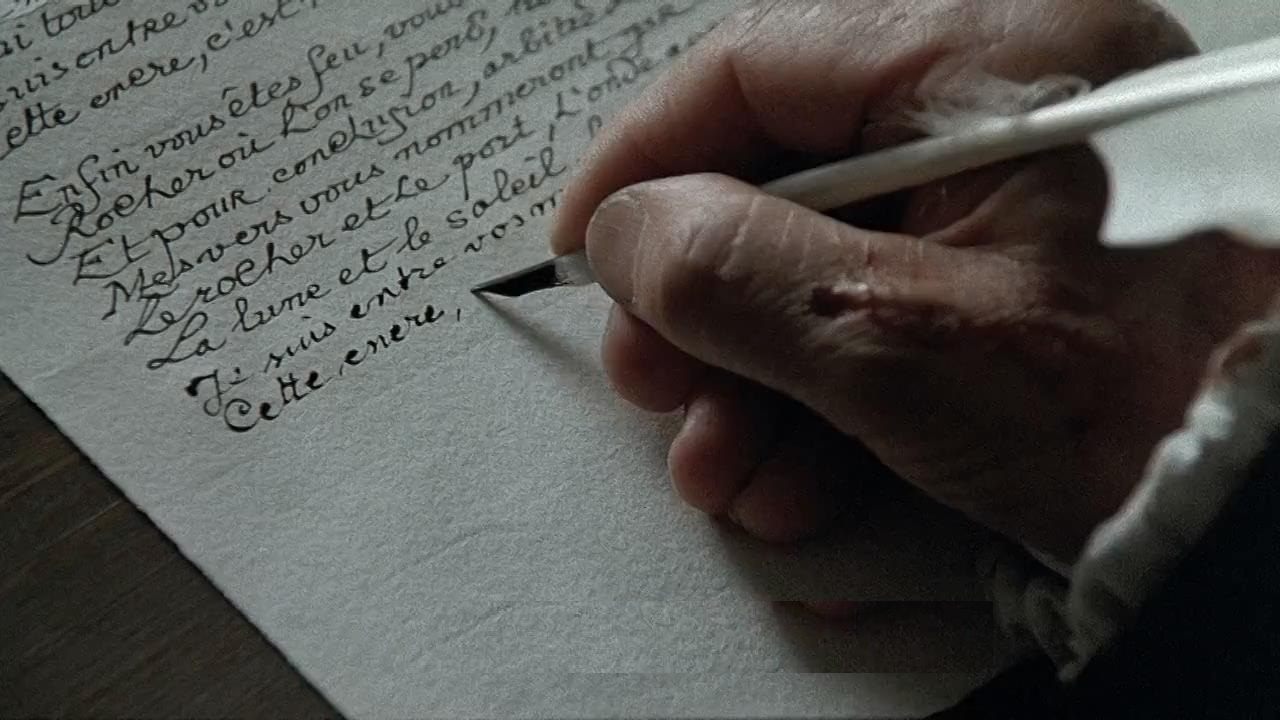 ai tou
suis entre v
ette encre, c'est
Enfin vous êtes feu, vous
Rocher où l'on se perd,
Et pour conclusion, arbitre
Mes vers vous nommeront
Le rocher et le port, l'onde
La lune et le soleil
Je suis entre vos m
Cette encre,